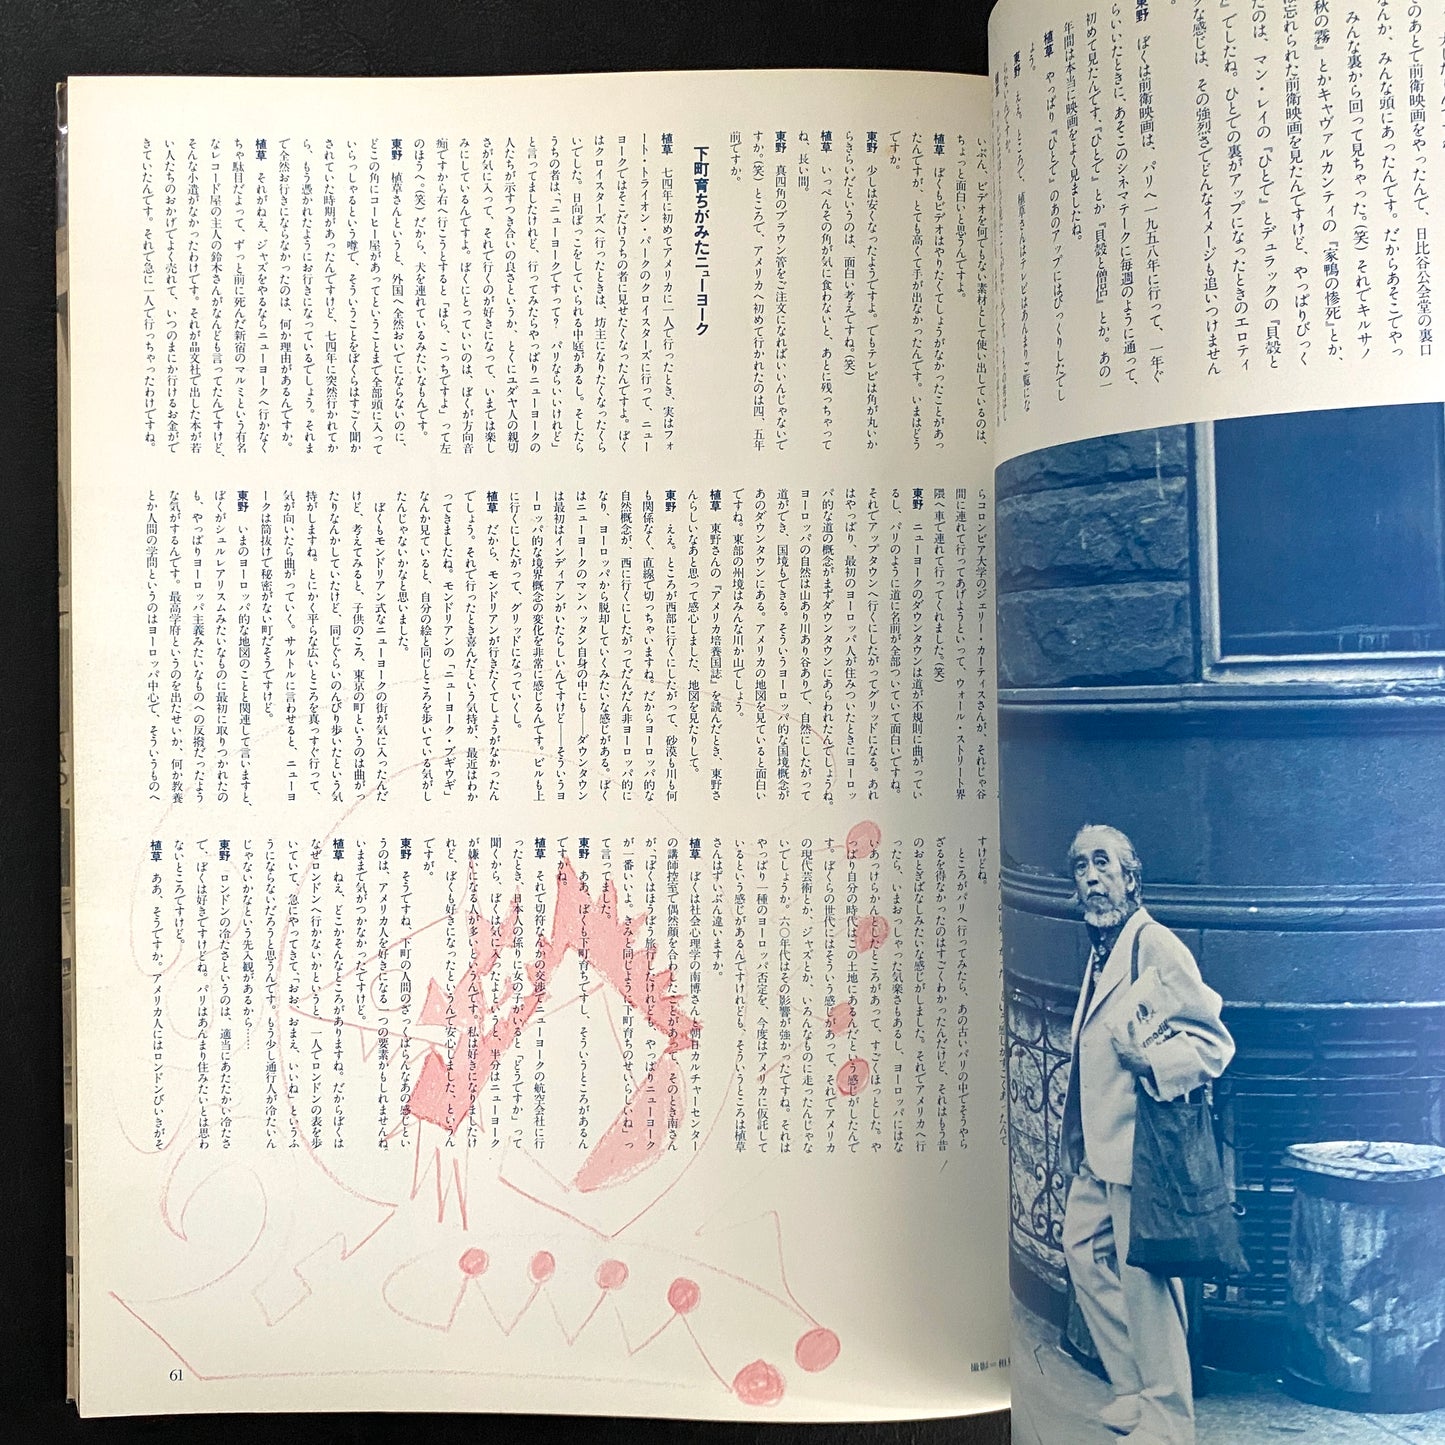 のあとで前衛映画をやったんで、日比谷公会堂の裏口
なんか、みんな頭にあったんです。だからあそこでやっ
みんな裏から回って見ちゃった。(笑) それでキルサノ
秋の霧』とかキャヴァルカンティの『家鴨の惨死』とか、
忘れられた前衛映画を見たんですけど、やっぱりびっく
たのは、マン・レイの『ひとで』とデュラックの『貝殻と
』でしたね。ひとでの裏がアップになったときのエロティ
な感じは、その強烈さでどんなイメージも追いつけません
東野 ぼくは前衛映画は、パリへ一九五八年に行って、一年ぐ
らいいたときに、あそこのシネマテークに毎週のように通って、
初めて見たんです、『ひとで』とか『貝殻と僧侶』とか。あの一
年間は本当に映画をよく見ましたね。
植草 やっぱり『ひとで』のあのアップにはびっくりしたでし
ょう。
東野 ええ。ところで、植草さんはテレビはあんまりご覧にな
いぶん、ビデオを何でもない素材として使い出しているのは、
ちょっと面白いと思うんですよ。
植草 ぼくもビデオはやりたくてしょうがなかったことがあっ
たんですが、とても高くて手が出なかったんです。いまはどう
ですか。
東野 少しは安くなったようですよ。でもテレビは角が丸いか
らきらいだというのは、面白い考えですね。(笑)
植草 いっぺんその角が気に食わないと、あとに残っちゃって
ね、長い間。
東野 真四角のブラウン管をご注文になればいいんじゃないで
すか。(笑) ところで、アメリカへ初めて行かれたのは四、五年
前ですか。
下町育ちがみたニューヨーク
植草 七四年に初めてアメリカに一人で行ったとき、実はフォ
ート・トライオン・パークのクロイスターズに行って、ニュー
ヨークではそこだけうちの者に見せたくなったんですよ。ぼく
はクロイスターズへ行ったときは、坊主になりたくなったくら
いでした。日向ぼっこをしていられる中庭があるし。そしたら
うちの者は、「ニューヨークですって? パリならいいけれど」
と言ってましたけれど、行ってみたらやっぱりニューヨークの
人たちが示すつき合いの良さというか、とくにユダヤ人の親切
さが気に入って、それで行くのが好きになって、いまでは楽し
みにしているんですよ。ぼくにとっていいのは、ぼくが方向音
痴ですから右へ行こうとすると「ほら、こっちですよ」って左
のほうへ。(笑) だから、犬を連れているみたいなもんです。
東野 植草さんというと、外国へ全然おいでにならないのに、
どこの角にコーヒー屋があってということまで全部頭に入って
いらっしゃるという噂で、そういうことをぼくらはすごく聞か
されていた時期があったんですけど、七四年に突然行かれてか
ら、もう憑かれたようにお行きになっているでしょう。それま
で全然お行きにならなかったのは、何か理由があるんですか。
植草 それがねえ、ジャズをやるならニューヨークへ行かなく
ちゃ駄目だよって、ずっと前に死んだ新宿のマルミという有名
なレコード屋の主人の鈴木さんがなんども言ってたんですけど、
そんな小遣がなかったわけです。それが晶文社で出した本が若
い人たちのおかげでよく売れて、いつのまにか行けるお金がで
きていたんです。それで急に一人で行っちゃったわけですね。
らコロンビア大学のジェリー・カーティスさんが、それじゃ谷
間に連れて行ってあげようといって、ウォール・ストリート界
隈へ車で連れて行ってくれました。(笑)
東野 ニューヨークのダウンタウンは道が不規則に曲がってい
るし、パリのように道に名前が全部ついていて面白いですね。
それでアップタウンへ行くにしたがってグリッドになる。あれ
はやっぱり、最初のヨーロッパ人が住みついたときにヨーロッ
パ的な道の概念がまずダウンタウンにあらわれたんでしょうね。
ヨーロッパの自然は山あり川あり谷ありで、自然にしたがって
道ができ、国境もできる。そういうヨーロッパ的な国境概念が
あのダウンタウンにある。アメリカの地図を見ていると面白い
ですね。東部の州境はみんな川か山でしょう。
植草 東野さんの『アメリカ培養国誌』を読んだとき、東野さ
んらしいなあと思って感心しました、地図を見たりして。
東野 ええ。ところが西部に行くにしたがって、砂漠も川も何
も関係なく、直線で切っちゃいますね。だからヨーロッパ的な
自然概念が、西に行くにしたがってだんだん非ヨーロッパ的に
なり、ヨーロッパから脱却していくみたいな感じがある。ぼく
はニューヨークのマンハッタン自身の中にも――ダウンタウン
は最初はインディアンがいたらしいんですけど――そういうヨ
ーロッパ的な境界概念の変化を非常に感じるんです。ビルも上
に行くにしたがって、グリッドになっていくし。
植草 だから、モンドリアンが行きたくてしょうがなかったん
でしょう。それで行ったとき喜んだという気持が、最近はわか
ってきましたね。モンドリアンの「ニューヨーク・ブギウギ」
なんか見ていると、自分の絵と同じところを歩いている気がし
たんじゃないかなと思いました。
ぼくもモンドリアン式なニューヨークの街が気に入ったんだ
けど、考えてみると、子供のころ、東京の町というのは曲がっ
たりなんかしていたけど、同じぐらいのんびり歩いたという気
持がしますね。とにかく平らな広いところを真っすぐ行って、
気が向いたら曲がっていく。サルトルに言わせると、ニューヨ
ークは筒抜けで秘密がない町だそうですけど。
東野 いまのヨーロッパ的な地図のことと関連して言いますと、
ぼくがシュルレアリスムみたいなものに最初に取りつかれたの
も、やっぱりヨーロッパ主義みたいなものへの反撥だったよう
な気がするんです。最高学府というのを出たせいか、何か教養
とか人間の学問というのはヨーロッパ中心で、そういうものへ
すけどね。
ところがパリへ行ってみたら、あの古いパリの中でそうやら
ざるを得なかったのはすごくわかったんだけど、それはもう昔
のおとぎばなしみたいな感じがしました。それでアメリカへ行
ったら、いまおっしゃった気楽さもあるし、ヨーロッパにはな
いあっけらかんとしたところがあって、すごくほっとした。や
っぱり自分の時代はこの土地にあるんだという感じがしたんで
す。ぼくらの世代にはそういう感じがあって、それでアメリカ
の現代芸術とか、ジャズとか、いろんなものに走ったんじゃな
いでしょうか。六〇年代はその影響が強かったですね。それは
やっぱり一種のヨーロッパ否定を、今度はアメリカに仮託して
いるという感じがあるんですけれども、そういうところは植草
さんはずいぶん違いますか。
植草 ぼくは社会心理学の南博さんと朝日カルチャーセンター
の講師控室で偶然顔を合わしたことがあって、そのとき南さん
が、「ぼくはほうぼう旅行したけれども、やっぱりニューヨーク
が一番いいよ。きみと同じように下町育ちのせいらしいね」っ
て言ってました。
東野 ああ、ぼくも下町育ちですし、そういうところがあるん
ですかね。
植草 それで切符なんかの交渉でニューヨークの航空会社に行
ったとき、日本人の係りに女の子がいると「どうですか」って
聞くから、ぼくは気に入ったよというと、半分はニューヨーク
が嫌いになる人が多いというんです。私は好きになりましたけ
れど、ぼくも好きになったというんで安心しました、というん
ですが。
東野 そうですね、下町の人間のざっくばらんなあの感じとい
うのは、アメリカ人を好きになる一つの要素かもしれませんね。
いままで気がつかなかったですけど。
植草 ねえ、どこかそんなところがありますね。だからぼくは
なぜロンドンへ行かないかというと、一人でロンドンの表を歩
いていて、急にやってきて、「おお、おまえ、いいね」というふ
うにならないだろうと思うんです。もう少し通行人が冷たいん
じゃないかなという先入観があるから……
東野 ロンドンの冷たさというのは、適当にあたたかい冷たさ
で、ぼくは好きですけどね。パリはあんまり住みたいとは思わ
ないところですけど。
植草 ああ、そうですか。アメリカ人にはロンドンびいきがそ
61
撮影=